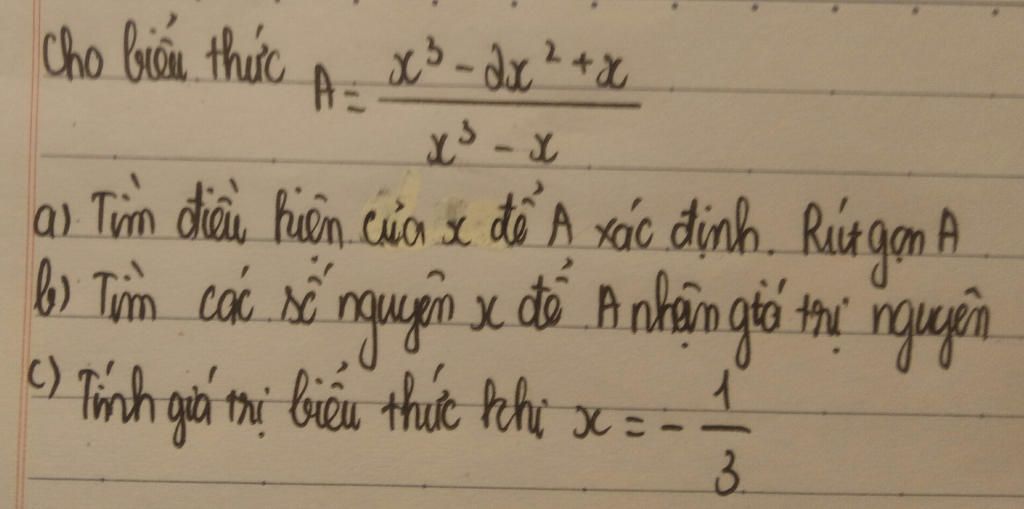 Cho biểu thức A = \frac{x³ - 2x² + x}{x³ - x}
a) Tìm điều kiện của x để A xác định. Rút gọn A
b) Tìm các số nguyên x để A nhận giá trị nguyên
c) Tính giá trị biểu thức khi x = - \frac{1}{3}